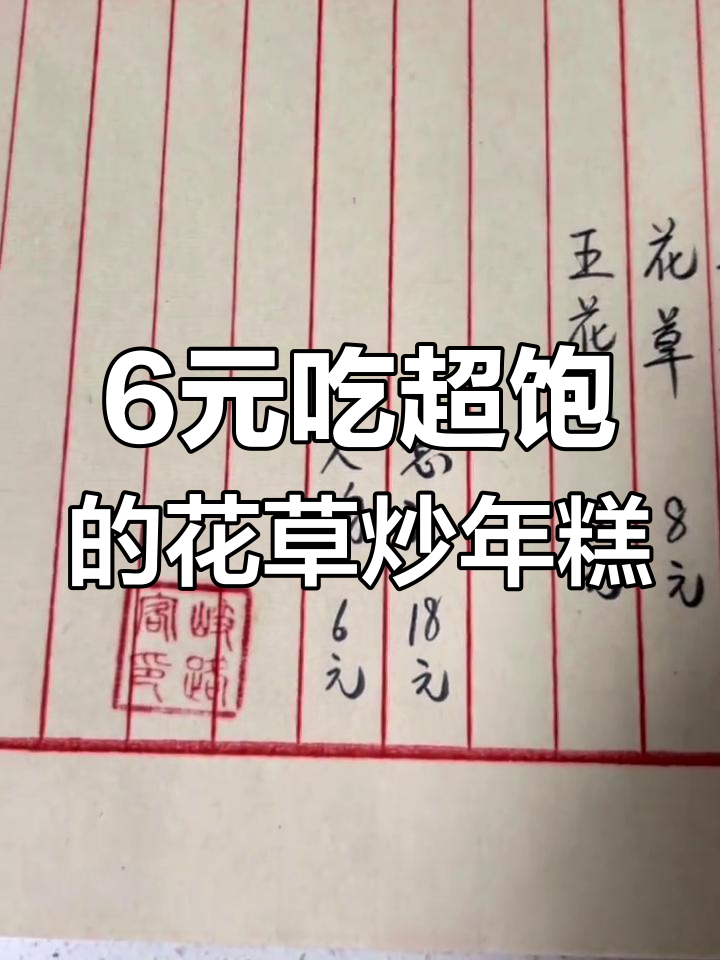 6元吃超饱
的花草炒年糕
花草 8元
王花
18元
6元
岐路
客印